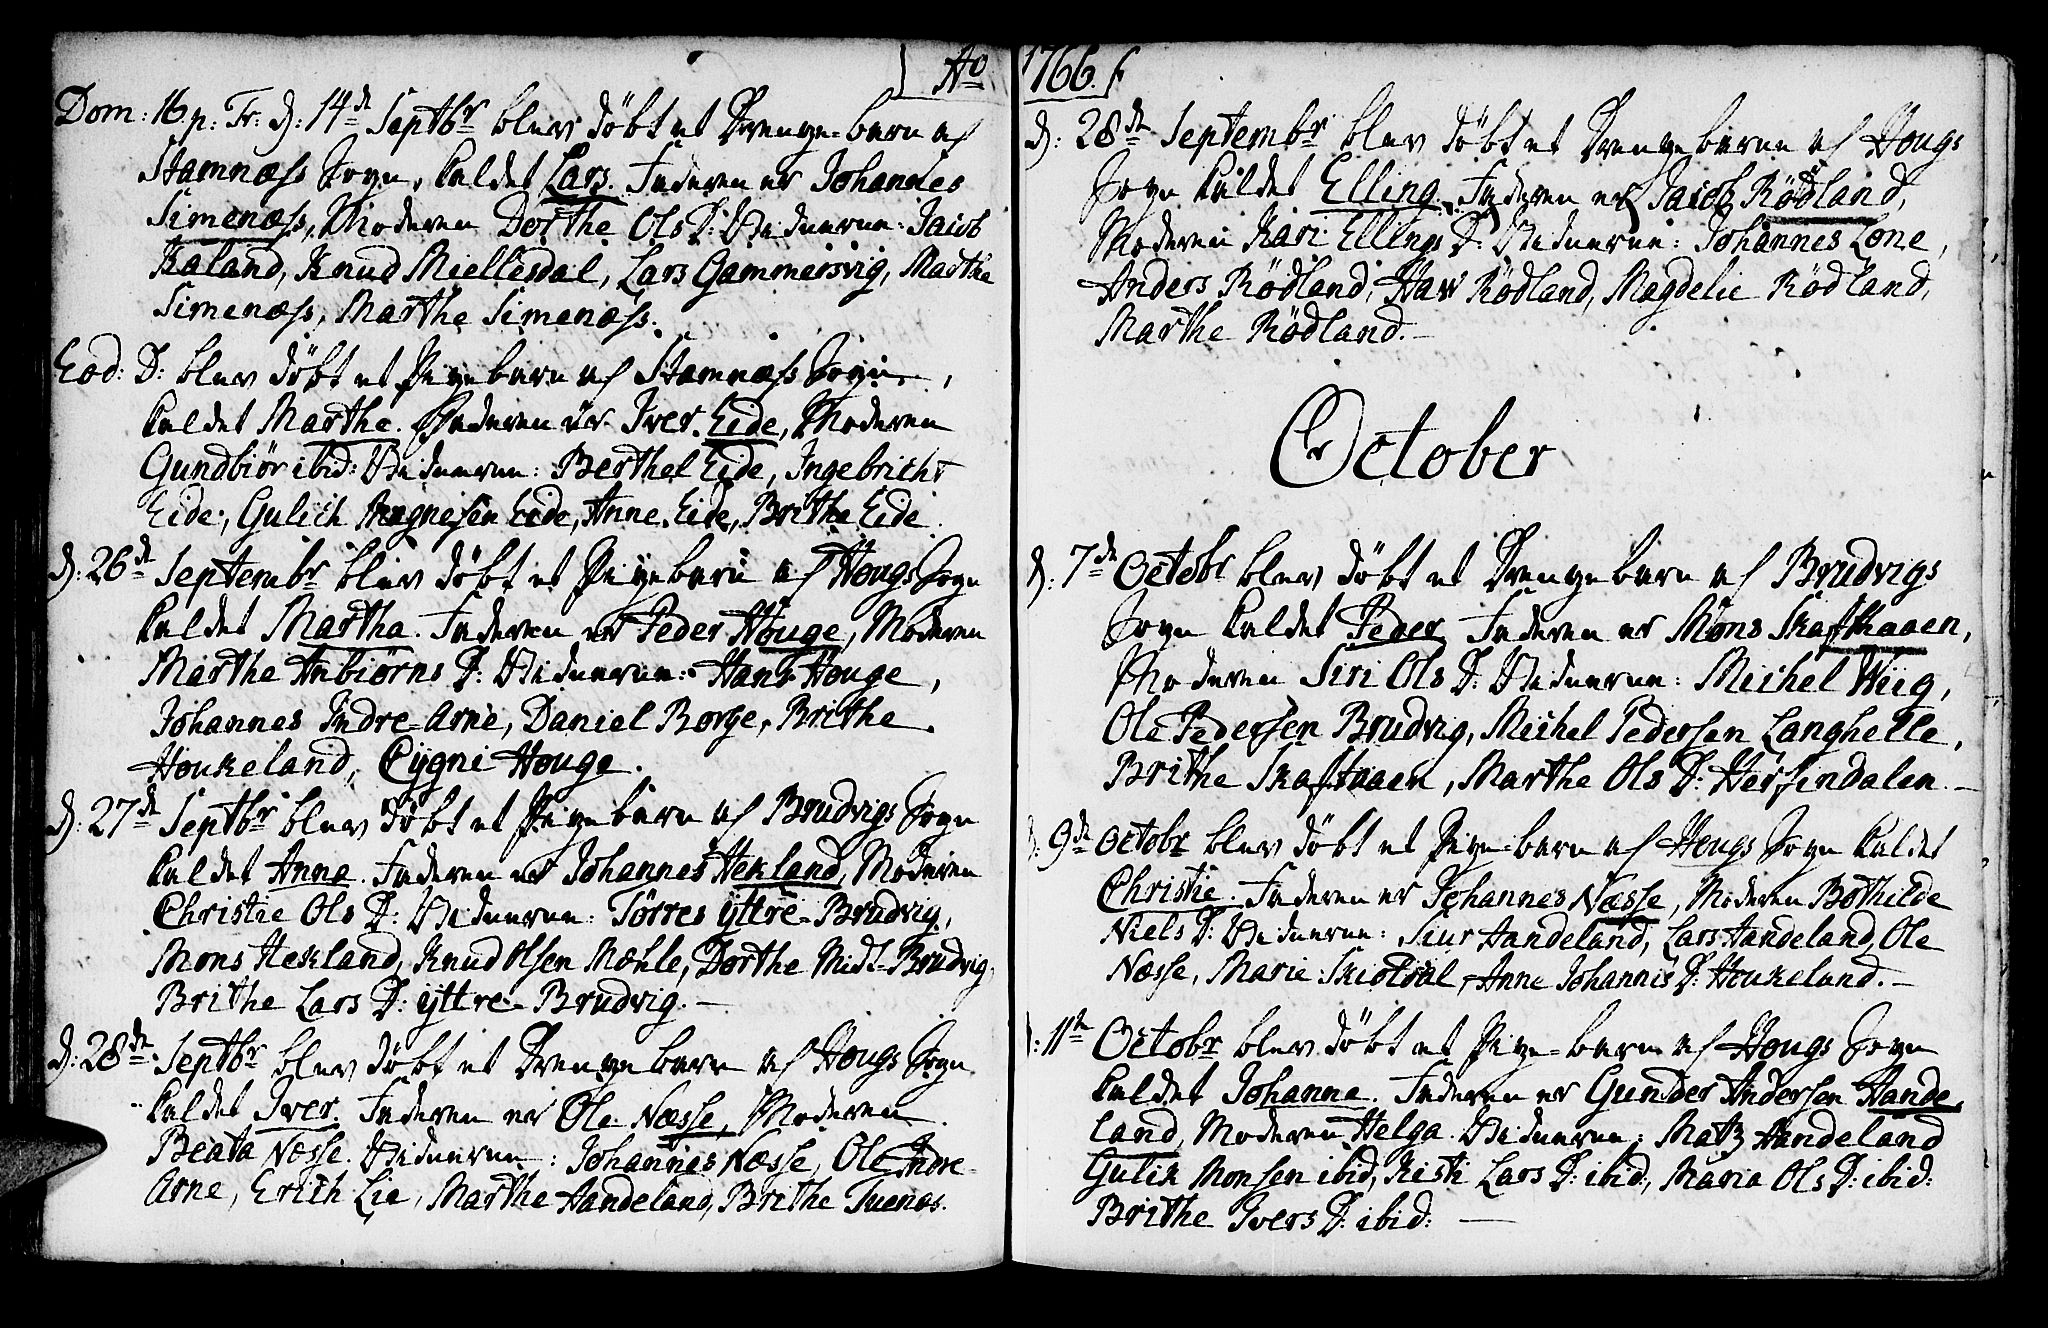 Ao
Dom: 16 p: Tr: d: 14de Septbr blev döbt et Drenge-barn af
Stamnæss Sogn, kaldet Lars. Faderen er Johannes
Simenæss, Moderen Dorthe Ols D: Vidnerne: Jacob
Kaland, Knud Miellesdal, Lars Gammersvig, Marthe
Simenæss, Marthe Simenæss.
Eod: D: blev döbt et Pigebarn af Stamnæss Sogn,
kaldet Marthe. Faderen er Iver Eide, Moderen
Gundbiör ibid: Vidnerne: Berthel Eide, Ingebricht
Eide, Gulich Magnesen Eide, Anne Eide, Brithe Eide.
d: 26de Septembr blev döbt et Pigebarn af Hougs Sogn
kaldet Martha. Faderen er Peder Houge, Moderen
Marthe Anbiörns D: Vidnerne: Hans Houge,
Johannes Indre-Arne, Daniel Borge, Brithe
Houkeland, Cygni Houge.
d: 27de Septbr blev döbt et Pigebarn af Brudvigs Sogn
kaldet Anna. Faderen er Johannes Hekland, Moderen
Christie Ols D: Vidnerne: Törres yttre-Brudvig,
Mons Hekland, Knud Olsen Mæhle, Dorthe Midt-Brudvig,
Brithe Lars D: yttre-Brudvig.
d: 28de Septbr blev döbt et Drengebarn af Hougs Sogn
kaldet Iver. Faderen er Ole Næsse, Moderen
Beata Næsse. Vidnerne: Johannes Næsse, Ole Indre-
Arne, Erich Lie, Marthe Aandeland, Brithe Tuenæs.
1766.
d: 28de Septembr blev döbt et Drengebarn af Hougs
Sogn kaldet Elling. Faderen er Jacob Rödland,
Moderen Kari Ellings D: Vidnerne: Johannes Lone,
Anders Rödland, Rödland, Magdelie Rödland,
Marthe Rödland.
October
d: 7de Octobr blev döbt et Drengebarn af Brudvigs
Sogn kaldet Peder. Faderen er Mons Skafthaaen,
Moderen Siri Ols D: Vidnerne: Michel Wiig,
Ole Pedersen Brudvig, Michel Pedersen Langhelle,
Brithe Skafthaaen, Marthe Ols D: Hersindalen.
d: 9de Octobr blev döbt et Pige-barn af Hougs Sogn kaldet
Christie. Faderen er Johannes Næsse, Moderen Bothilde
Niels D: Vidnerne: Siur Aandeland, Lars Aandeland, Ole
Næsse, Marie Skiotdal, Anne Johannis D: Houkeland.
d: 11te Octobr blev döbt et Pige-barn af Hougs Sogn
kaldet Johanne. Faderen er Gunder Andersen Aande-
land, Moderen Helga. Vidnerne: Matz Aandeland
Gulik Monsen ibid, Kisti Lars D: ibid:, Maria Ols D: ibid:
Brithe Ivers D: ibid: